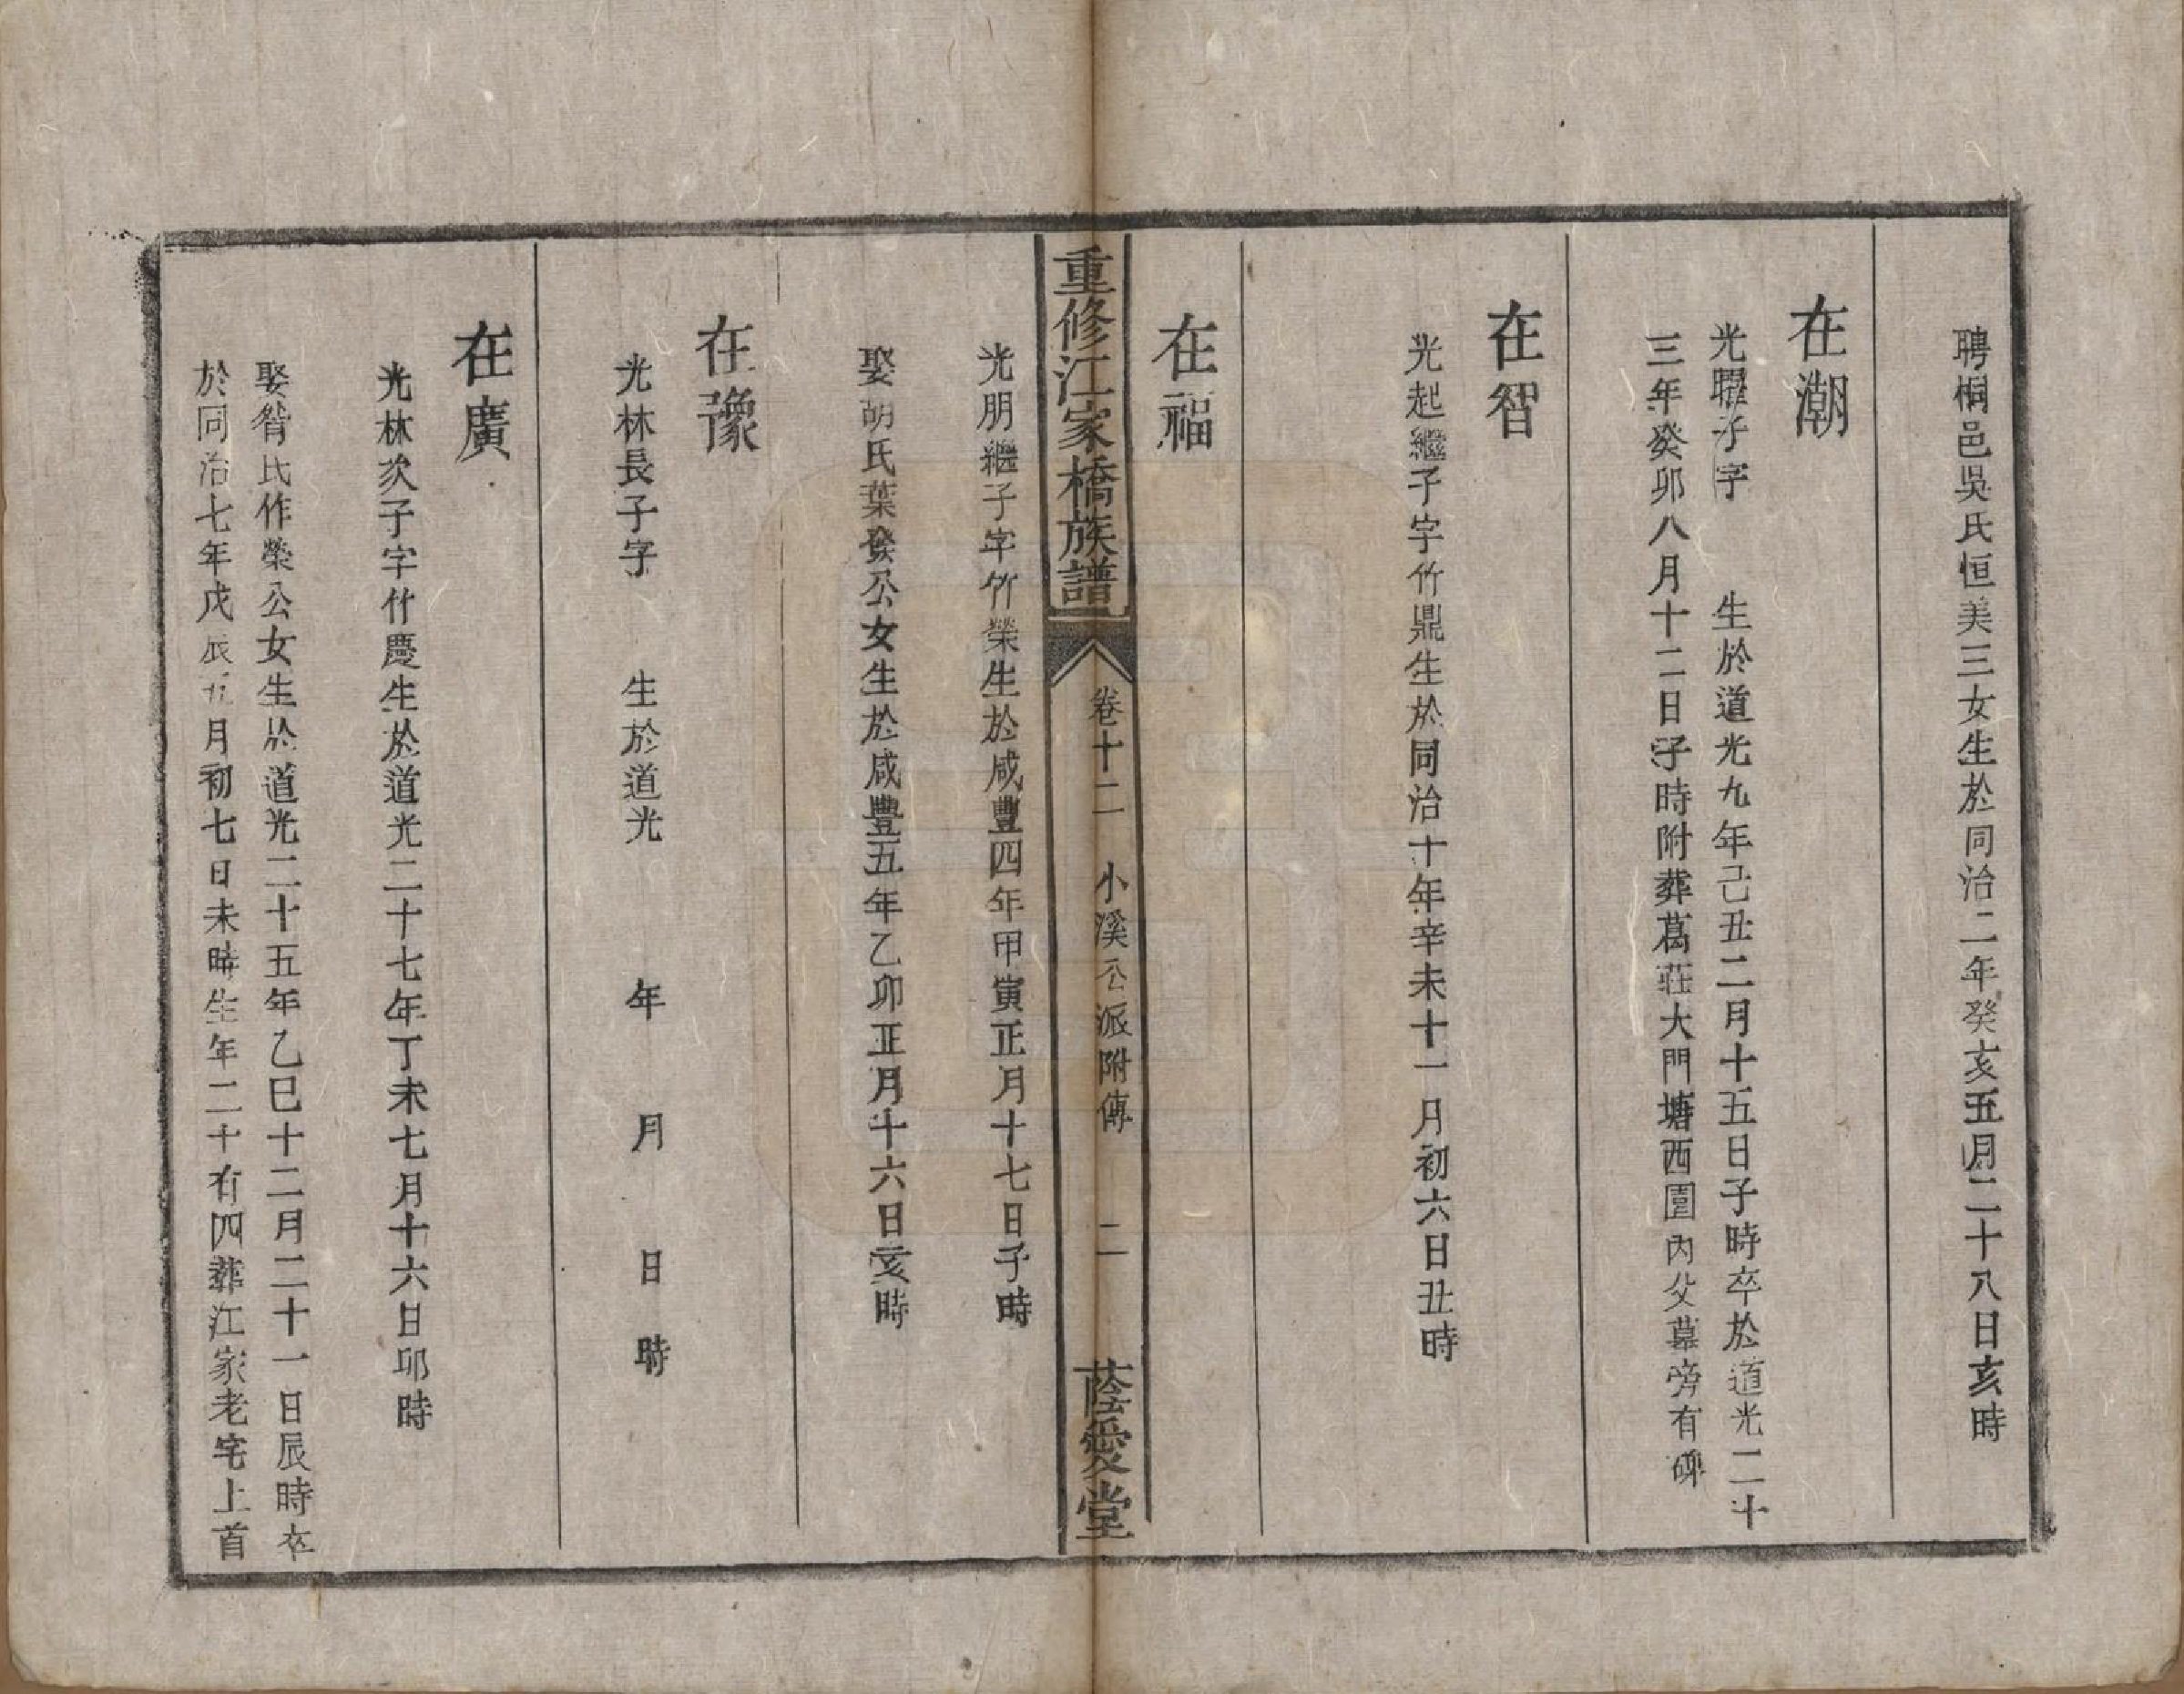 聘桐邑吳氏恒美三女生於同治二年癸亥五月二十八日亥時
在潮
光曜子字　生於道光九年己丑二月十五日子時卒於道光二十
三年癸卯八月十二日子時附葬葛莊大門塘西園內父墓旁有碑
在智
光起繼子字竹鼎生於同治十年辛未十一月初六日丑時
在福
重修江家橋族譜　卷十二　小溪公派附傳　二　蔭愛堂
光朋繼子字竹榮生於咸豐四年甲寅正月十七日子時
娶胡氏葉發公女生於咸豐五年乙卯正月十六日亥時
在豫
光林長子字　生於道光　年　月　日　時
在廣
光林次子字竹慶生於道光二十七年丁未七月十六日卯時
娶昝氏作榮公女生於道光二十五年乙巳十二月二十一日辰時卒
於同治七年戊辰五月初七日未時生年二十有四葬江家老宅上首